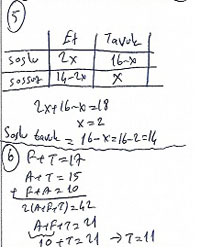 5
Et Tavuk
Soslu 2x 16-x
Sossuz 14-2x x
2x+16-x=18
x=2
Soslu tavuk = 16-x=16-2=14
6 F+T=17
A+T=15
+ F+A=10
2(A+F+T)=42
A+F+T=21
10+T=21 → T=11